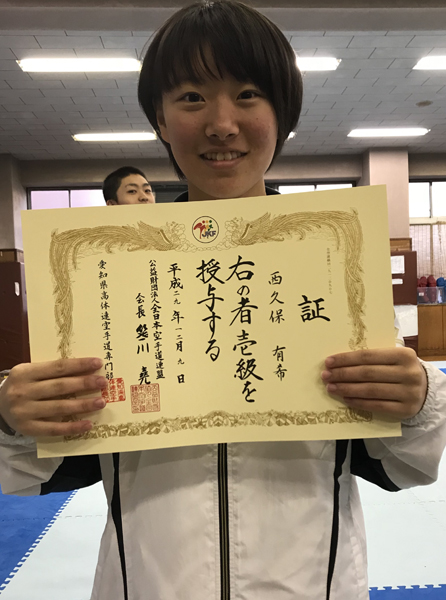 証
西久保 有希
右の者壱級を
授与する
平成二九年一二月九日
公益財団法人全日本空手道連盟
会長 笹川 堯
愛知県高体連空手道専門部